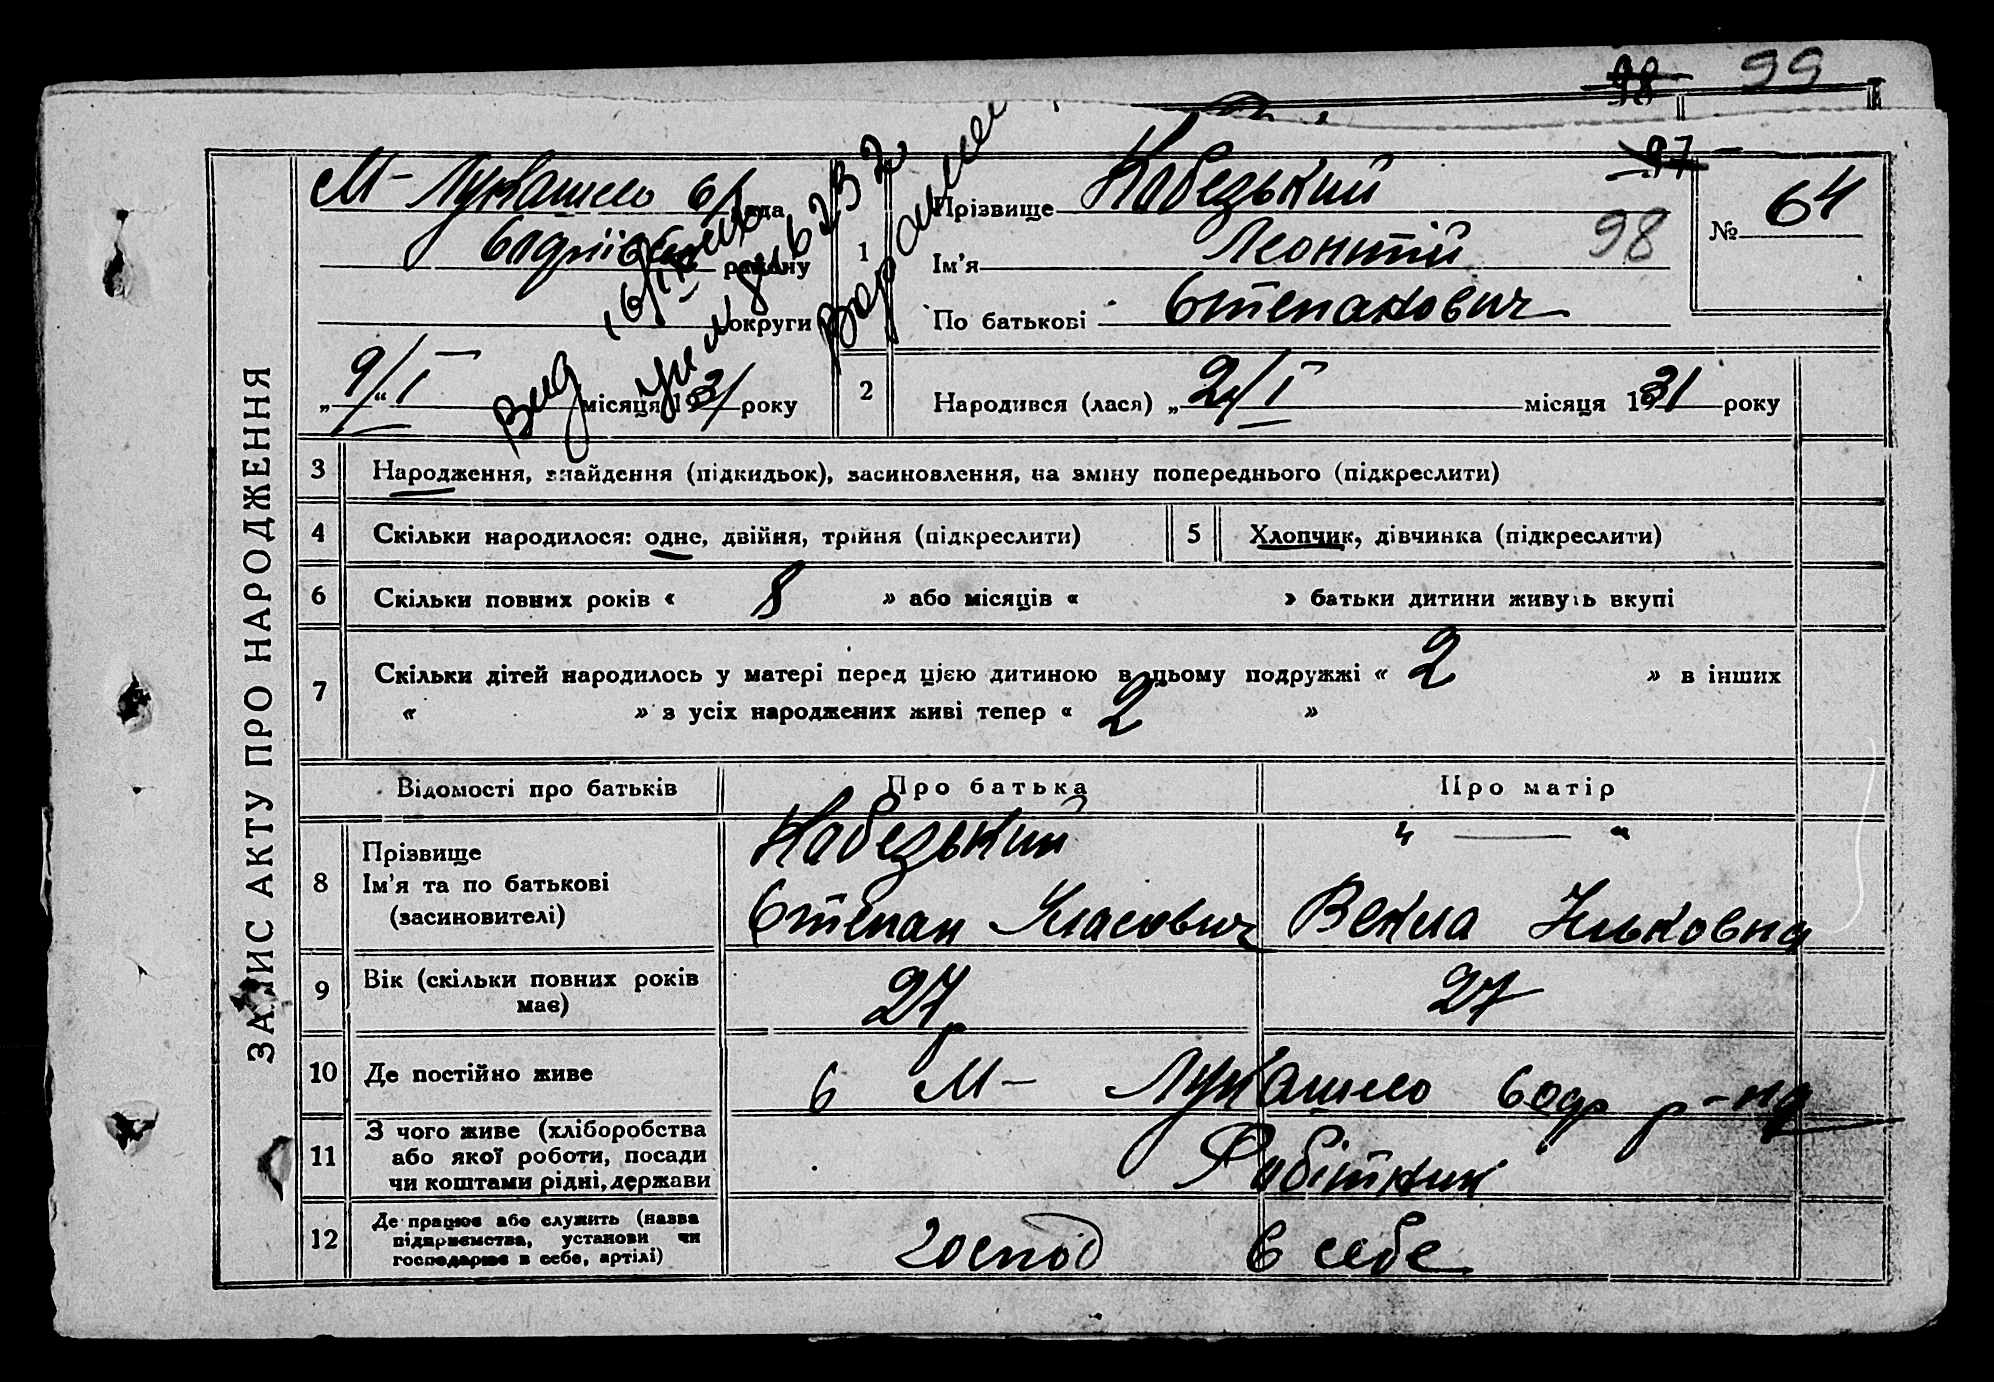 98 99
97
М- Лукашево с/ рада
району
округи
„ 9/I “ місяця 1931 року
1
Прізвище Кабезький
Ім’я Леонтій 98
По батькові Степанович
№ 64
2
Народився (лася) „ 2/I місяця 1931 року
ЗАПИС АКТУ ПРО НАРОДЖЕННЯ
3 Народження, знайдення (підкидьок), засиновлення, на зміну попереднього (підкреслити)
4 Скільки народилося: одне, двійня, трійня (підкреслити) 5 Хлопчик, дівчинка (підкреслити)
6 Скільки повних років « 8 » або місяців « » батьки дитини живуть вкупі
7 Скільки дітей народилось у матері перед цією дитиною в цьому подружжі « 2 » в інших
« » з усіх народжених живі тепер « 2 »
Відомості про батьків Про батька Про матір
8 Прізвище Кабезький „ — “
Ім’я та по батькові
(засиновителі) Степан Власович Векла Ільковна
9 Вік (скільки повних років
має) 27 р 27
10 Де постійно живе с М- Лукашево Солр р-на
11 З чого живе (хліборобства
або якої роботи, посади
чи коштами рідні, держави Робітник
12 Де працює або служить (назва
підприємства, установи чи
господарює в себе, артілі) господ в себе